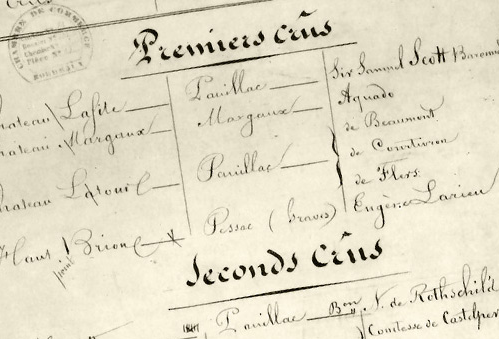 CHAMBRE DE COMMERCE
BORDEAUX
Premiers Crûs
Château Lafite Pauillac Sir Samuel Scott
Château Margaux Margaux Aguado
de Beaumont
Château Latour Pauillac de Courtivron
de Flers
Haut Brion Pessac (Graves) Eugène Larieu
Seconds Crûs
Pauillac Bon N. de Rothschild
Comtesse de